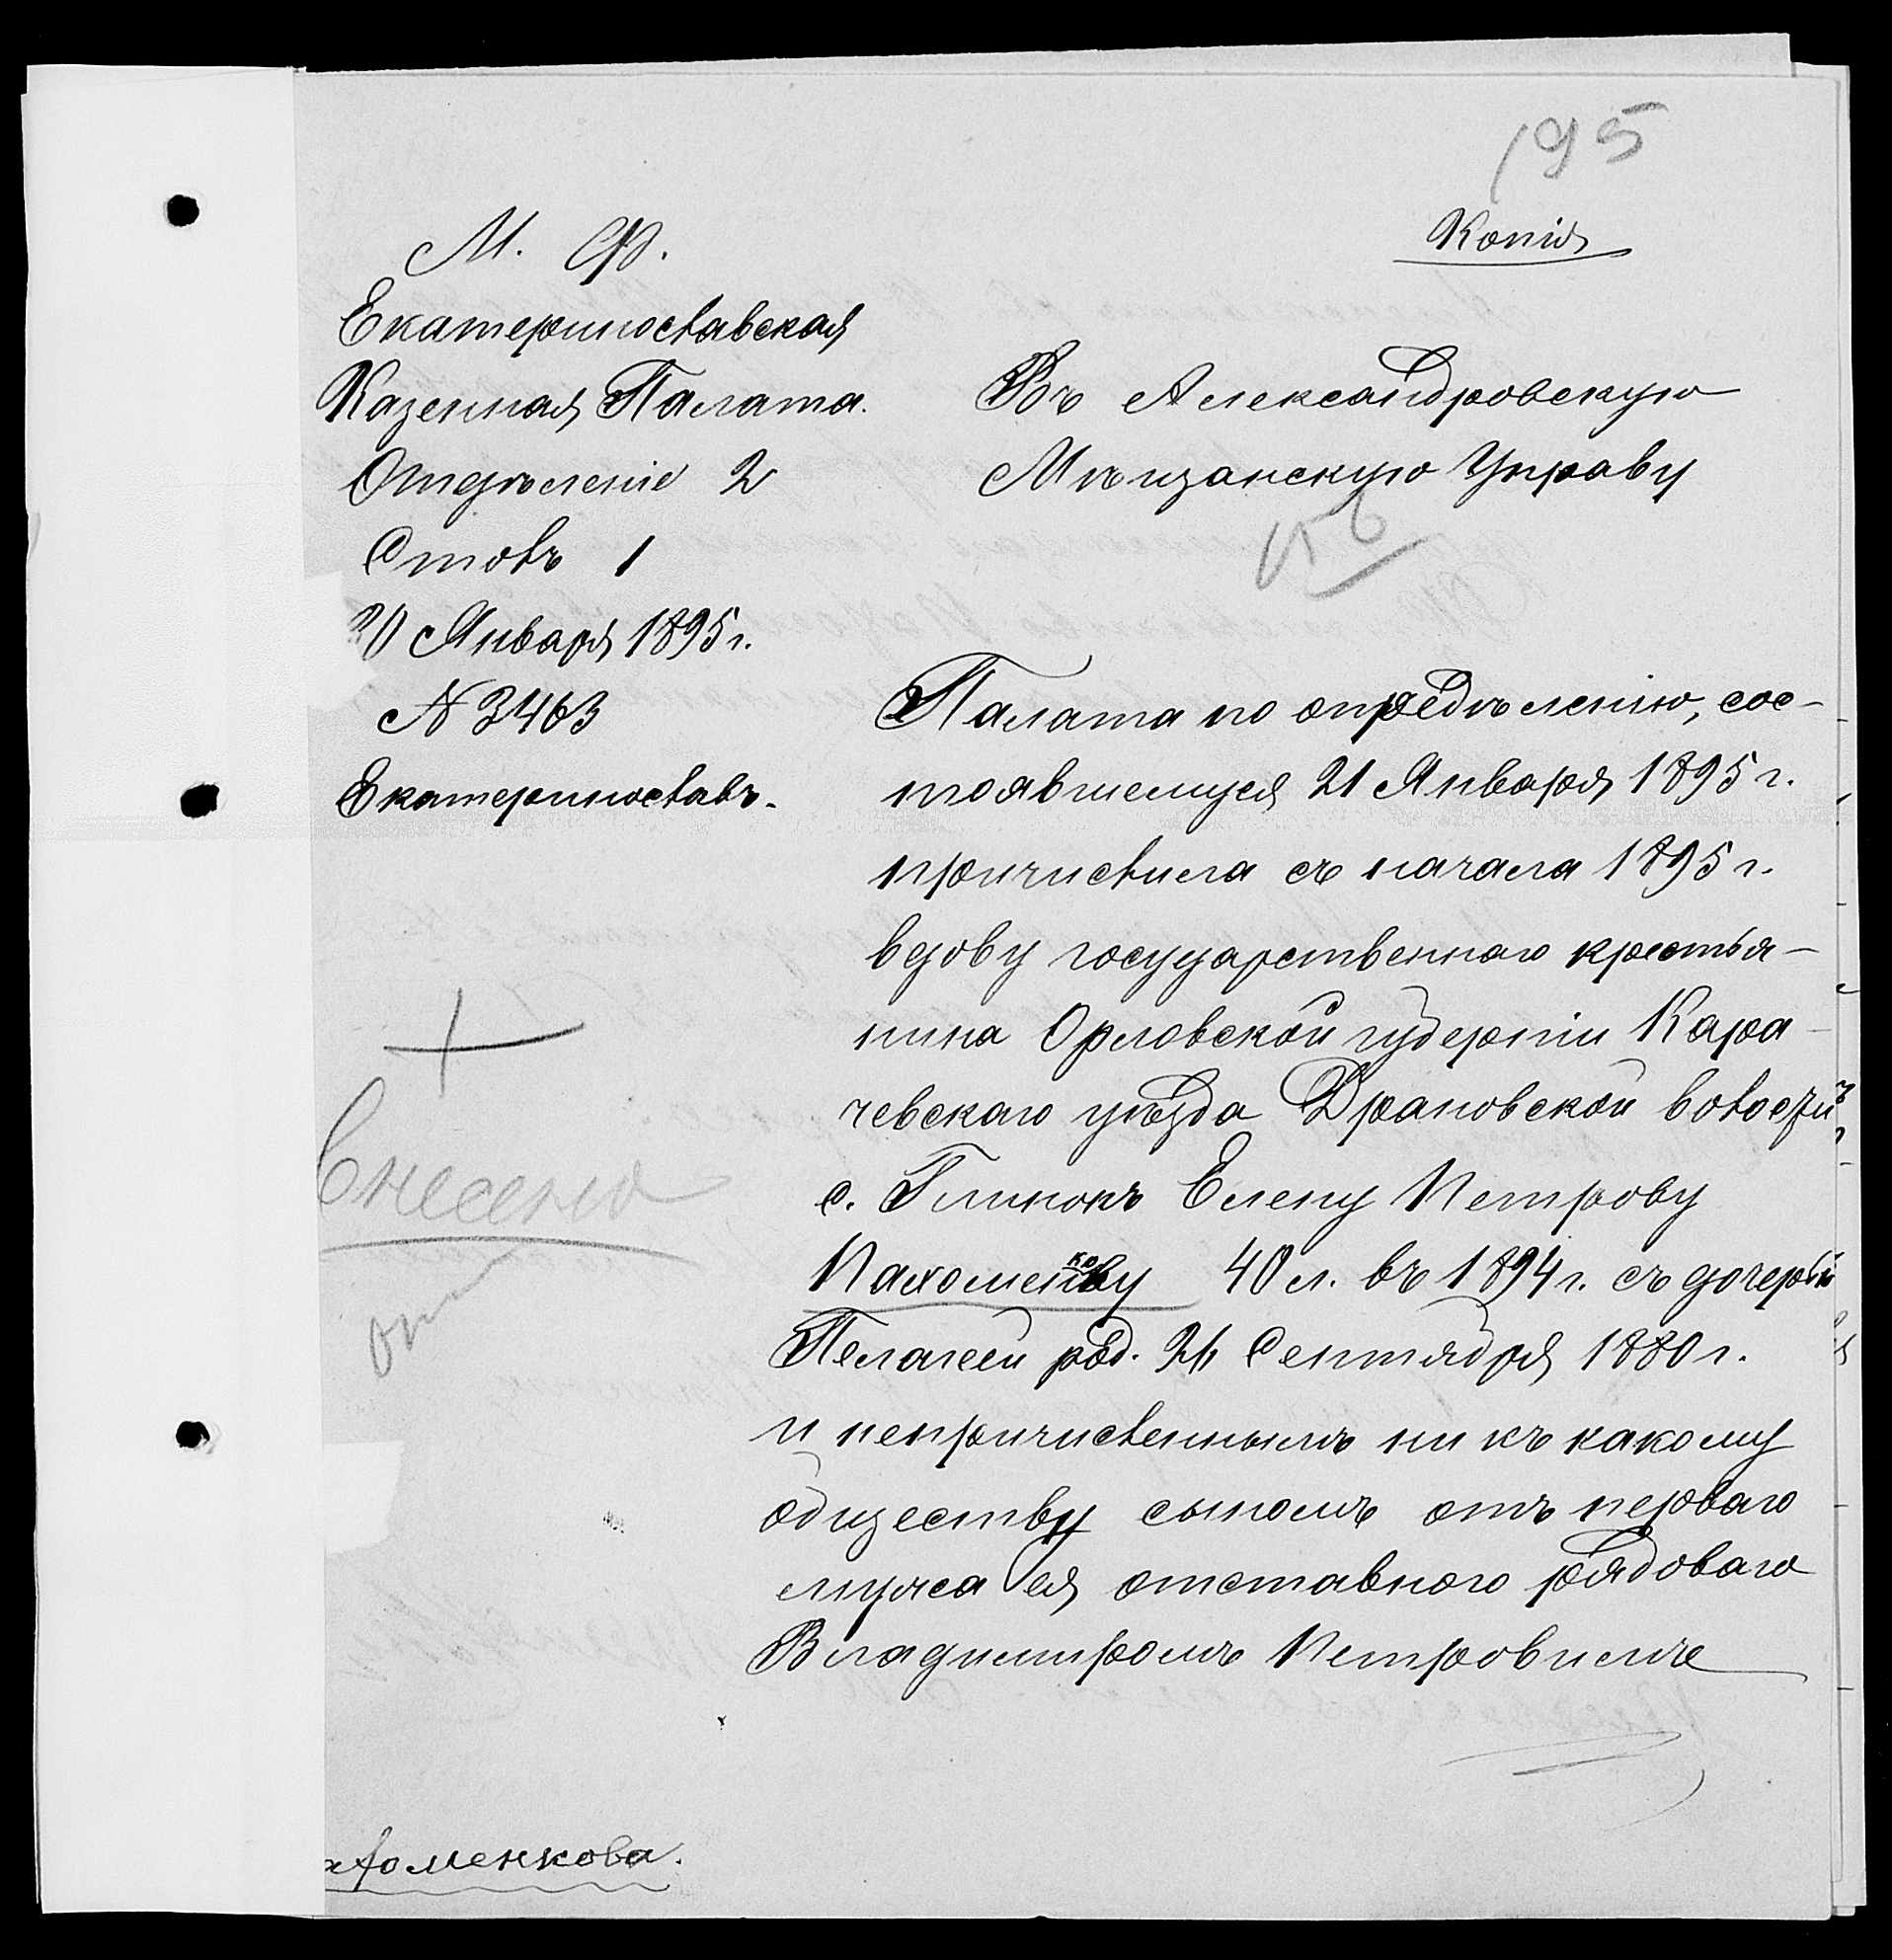 195
Копія
М. Ф.
Екатеринославская
Казенная Палата.
Отдѣленіе 2
Столъ 1
30 Января 1895 г.
№ 3463
Екатеринославъ.
Въ Александровскую
Мѣщанскую Управу
Палата по опредѣленію, сос-
тоявшемуся 21 Января 1895 г.
причислила съ начала 1895 г.
вдову государственнаго крестья-
нина Орловской губерніи Кара-
чевскаго уѣзда Драновской волости
с. Глинокъ Елену Петрову
Пахоменкову 40 л. въ 1894 г. съ дочерью
Пелагеей род. 21 Сентября 1880 г.
и непричисленнымъ ни къ какому
обществу сыномъ отъ перваго
мужа ея отставного рядоваго
Владимиромъ Петровымъ
+
Внесено
ахоменкова.